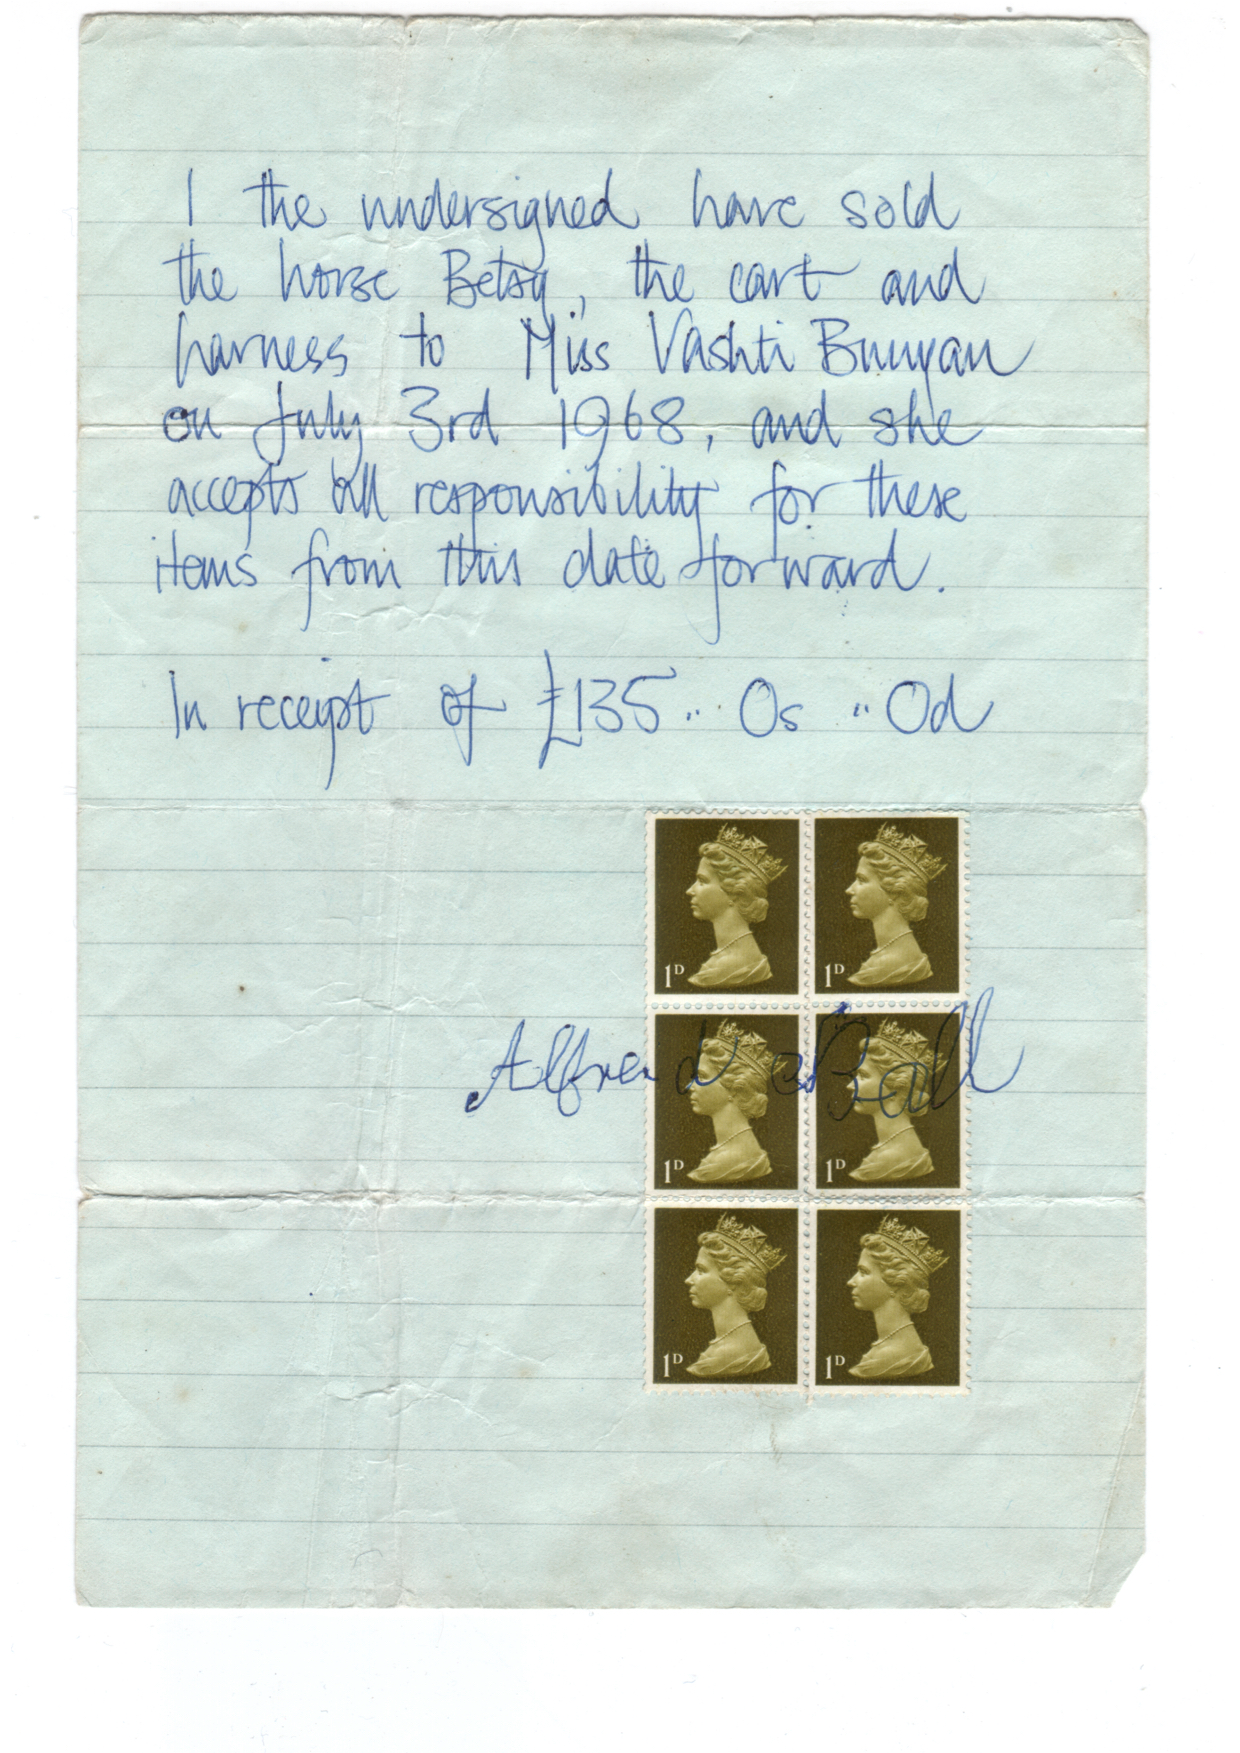 I the undersigned have sold
the horse Betsy, the cart and
harness to Miss Vashti Bunyan
on July 3rd 1968, and she
accepts all responsibility for these
items from this date forward.
In receipt of £135 .. 0s .. 0d
1D 1D
Alfred Ball
1D 1D
1D 1D